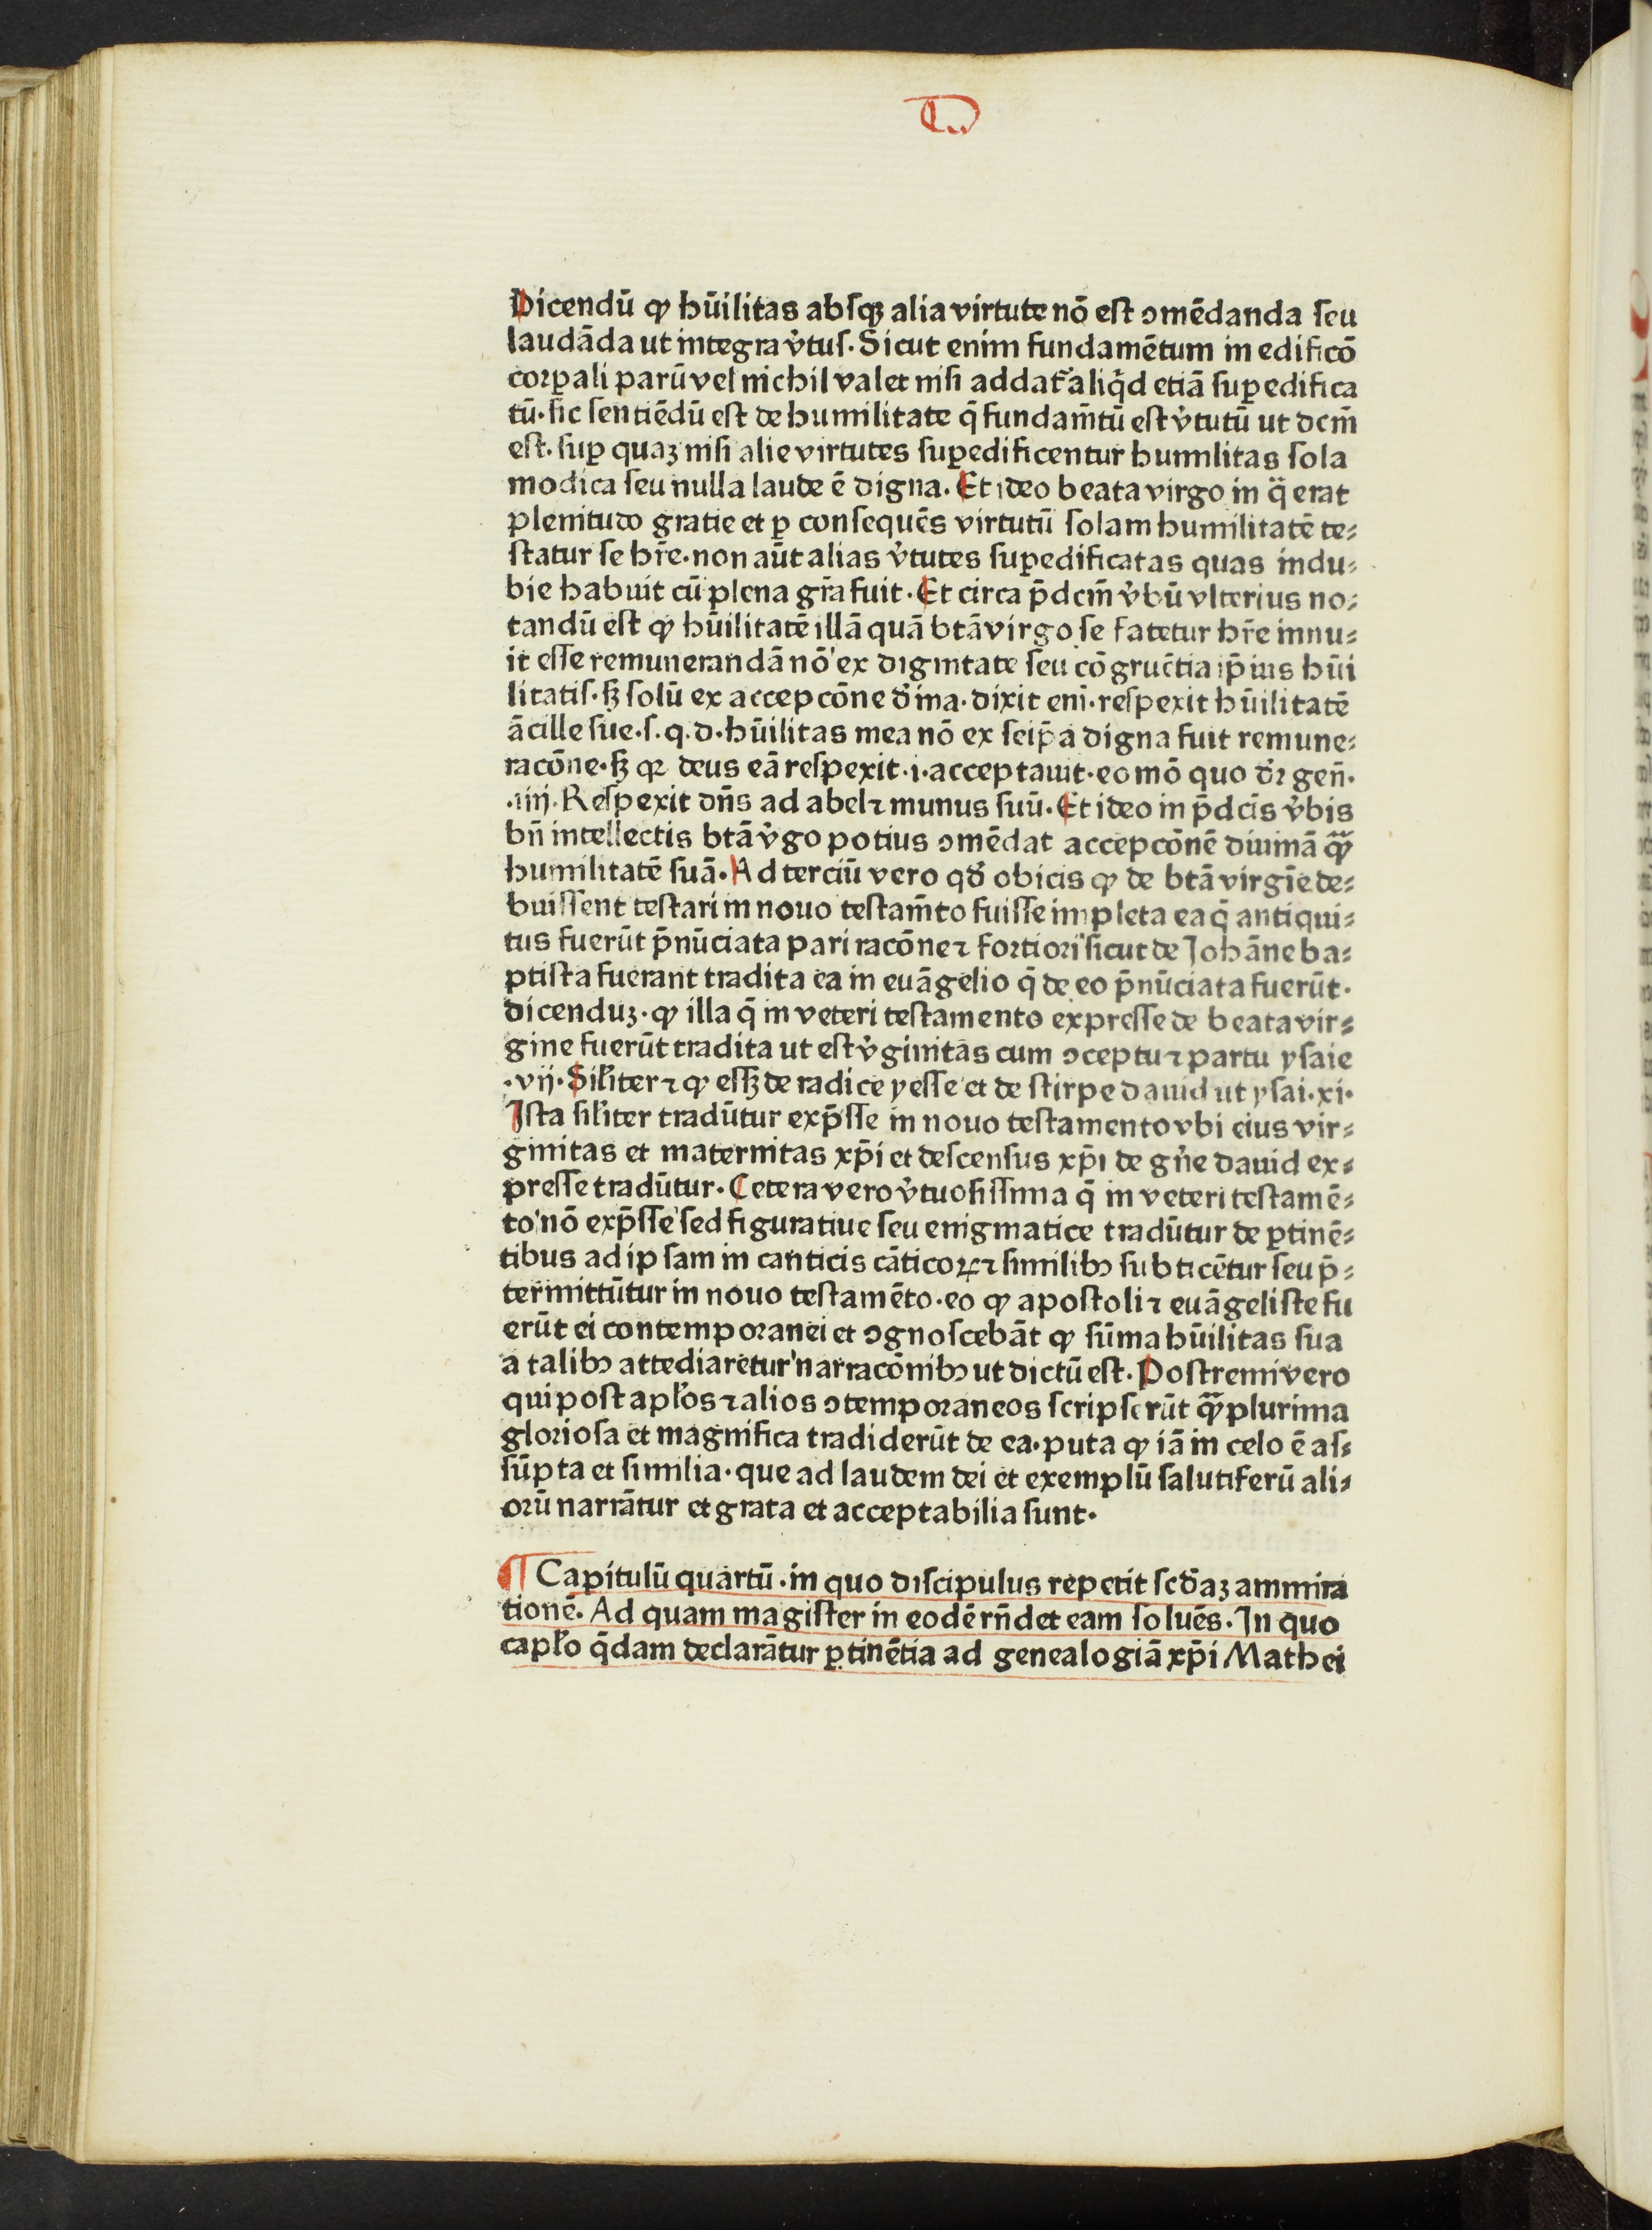 Dicendū ꝙ hūilitas absqꝫ alia virtute nō est ↄmēdanda seu
laudāda ut integra v̾tus. Sicut enim fundamētum in edificō
corꝑali parū vel nichil valet nisi addat᷑ aliq̇d etiā suꝑedifica
tū. sic sentiēdū est de humilitate q̄ fundam̄tū est v̾tutū ut dcm̄
est. suꝑ quaꝫ nisi alie virtutes suꝑedificentur humilitas sola
modica seu nulla laude ē digna. Et ideo beata virgo in q̈ erat
plenitudo gratie et ꝑ consequēs virtutū solam humilitatē te⸗
statur se hr̄e. non aūt alias v̾tutes suꝑedificatas quas indu⸗
bie habuit cū plena gr̄a fuit. Et circa p̄dcm̄ v̾bū vlterius no⸗
tandū est ꝙ hūilitatē illā quā btā virgo se fatetur hr̄e innu⸗
it esse remunerandā nō ex dignitate seu cōgruētia ip̄ius hūi
litatis. sꝫ solū ex accepcōne d̾ina. dixit eni. respexit hūilitatē
ācille sue. s. q. d. hūilitas mea nō ex seip̄a digna fuit remune⸗
racōne. sꝫ qꝛ deus eā respexit .i. acceptauit. eo mō quo d̾ꝛ gen̄.
.iiij. Respexit dn̄s ad abel ⁊ munus suū. Et ideo in p̄dcīs v̾bis
bn̄ intellectis btā v̾go potius ↄmēdat accepcōnē diuinā qꝫ̃
humilitatē suā. Ad terciū vero qd̾ obicis ꝙ de btā virgīe de⸗
buissent testari in nouo testam̄to fuisse impleta ea q̄ antiqui⸗
tus fuerūt p̄nūciata pari racōne ⁊ fortiori sicut de Johāne ba⸗
ptista fuerant tradita ea in euāgelio q̄ de eo p̄nūciata fuerūt.
dicenduꝫ. ꝙ illa q̄ in veteri testamento expresse de beata vir⸗
gine fuerūt tradita ut est v̾ginitas cum ↄceptu ⁊ partu ysaie
.vij. Silr̄iter ⁊ ꝙ essꝫ de radice yesse et de stirpe dauid ut ysai. xi.
Ista silr̄iter tradūtur exp̄sse in nouo testamento vbi eius vir⸗
ginitas et maternitas xp̄i et descensus xp̄i de gn̾e dauid ex⸗
presse tradūtur. Cetera vero v̾tuosissima q̄ in veteri testamē⸗
to nō exp̄sse sed figuratiue seu enigmatice tradūtur de ꝑtinē⸗
tibus ad ipsam in canticis cāticoꝝ ⁊ similibꝰ subticētur seu p̄⸗
termittūtur in nouo testamēto. eo ꝙ apostoli ⁊ euāgeliste fu
erūt ei contemporanei et ↄgnoscebāt ꝙ sūma hūilitas sua
a talibꝰ attediaretur narracōnibꝰ ut dictū est. Postremi vero
qui post apl̾os ⁊ alios ↄtemporaneos scripserūt qꝫ̃plurima
gloriosa et magnifica tradiderūt de ea. puta ꝙ iā in celo ē as⸗
sūpta et similia. que ad laudem dei et exemplū salutiferū ali⸗
orū narrātur et grata et acceptabilia sunt.
¶ Capitulū quartū. in quo discipulus repetit scd̾aꝫ ammira
tionē. Ad quam magister in eodē rn̄det eam soluēs. In quo
capl̾o q̄dam declarātur ꝑtinētia ad genealogiā xp̄i Mathei